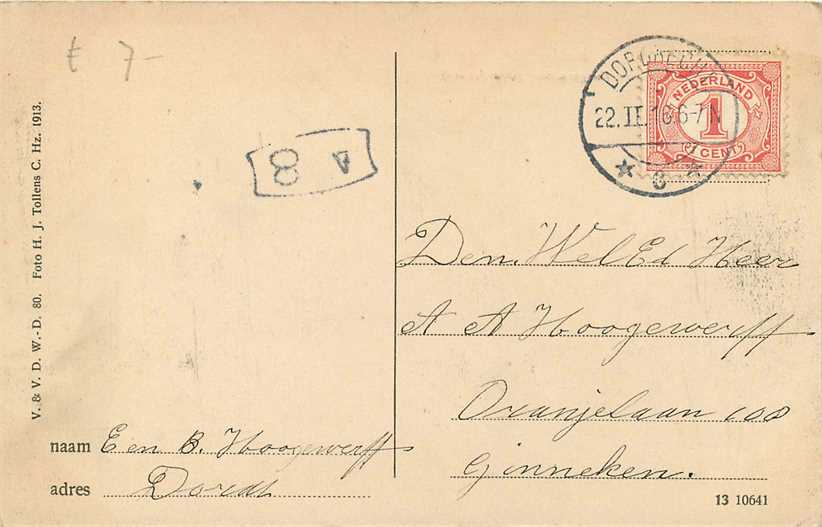 € 7-
V. & V. D. W.-D. 80. Foto H. J. Tollens C. Hz. 1913.
8
DORDRECHT
22.II.16 6-7 N
NEDERLAND
1
CENT
Den. WelEd Heer
A A Hoogewerff
Oranjelaan 108
Ginneken.
naam E en B. Hoogewerff
adres Dordt
13 10641